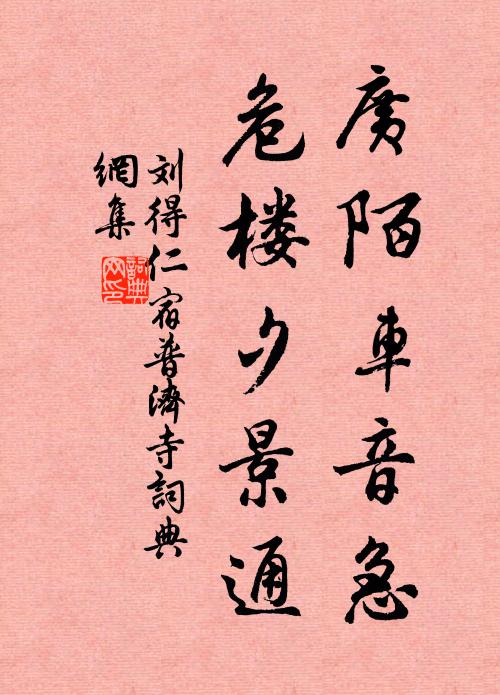 廣陌車音急
危楼夕景通
刘得仁宿普濟寺詞典
網集
詞典
网印